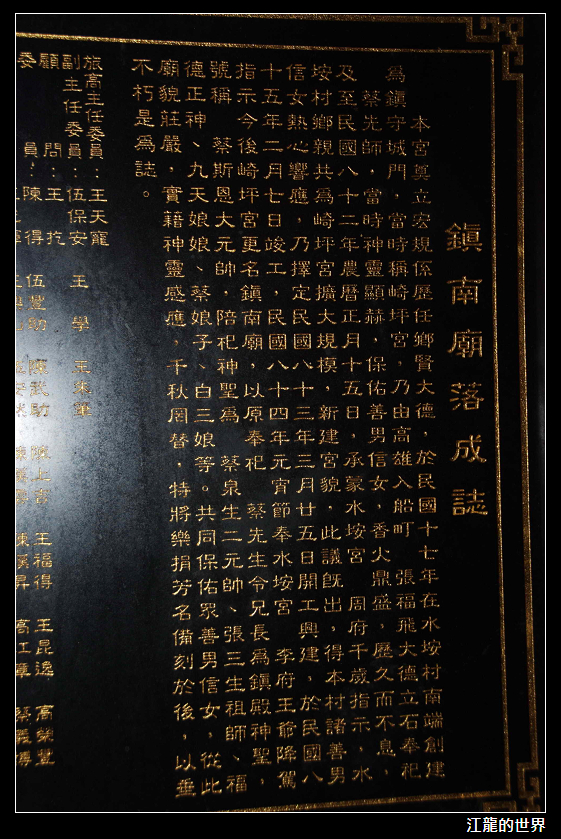 鎮南廟落成誌
本宮奠立宏規係歷任鄉賢大德，於民國十七年在水垵村南端創建
為鎮守城門，當時稱崎坪宮，乃由高雄入船町　張福飛大德立石奉祀
蔡先師，當時神靈顯赫，保佑善男信女，香火鼎盛，歷久而不息，
及至民國八十二年農曆正月十五日，承蒙水垵宮　周府千歲指示，水
垵村鄉親共為崎坪宮擴大規模，新建宮貌，此議既出，得本村諸善男
信女熱心響應，乃擇定民國八十三年三月廿五日開工興建，於民國八
十五年二月七日竣工，民國八十四年元宵節奉水垵宮　李府王爺降駕
指示今後崎坪宮更名鎮南廟，以原奉祀　蔡先生令兄長為鎮殿神聖，
號稱　蔡斯恩大元帥，陪祀神聖為　蔡泉生二元帥、張三生祖師、福
德正神、九天娘娘、蔡娘子、白三娘等。共同保佑眾善男信女，從此
廟貌莊嚴，實藉神靈感應，千秋罔替，特將樂捐芳名備刻於後，以垂
不朽是為誌。
旅高主任委員：王天寵
副主任委員：伍保安　王　學
顧　　問：王　抗
委　　員：陳　得　王福得　王昆逸　高榮豐
江龍的世界